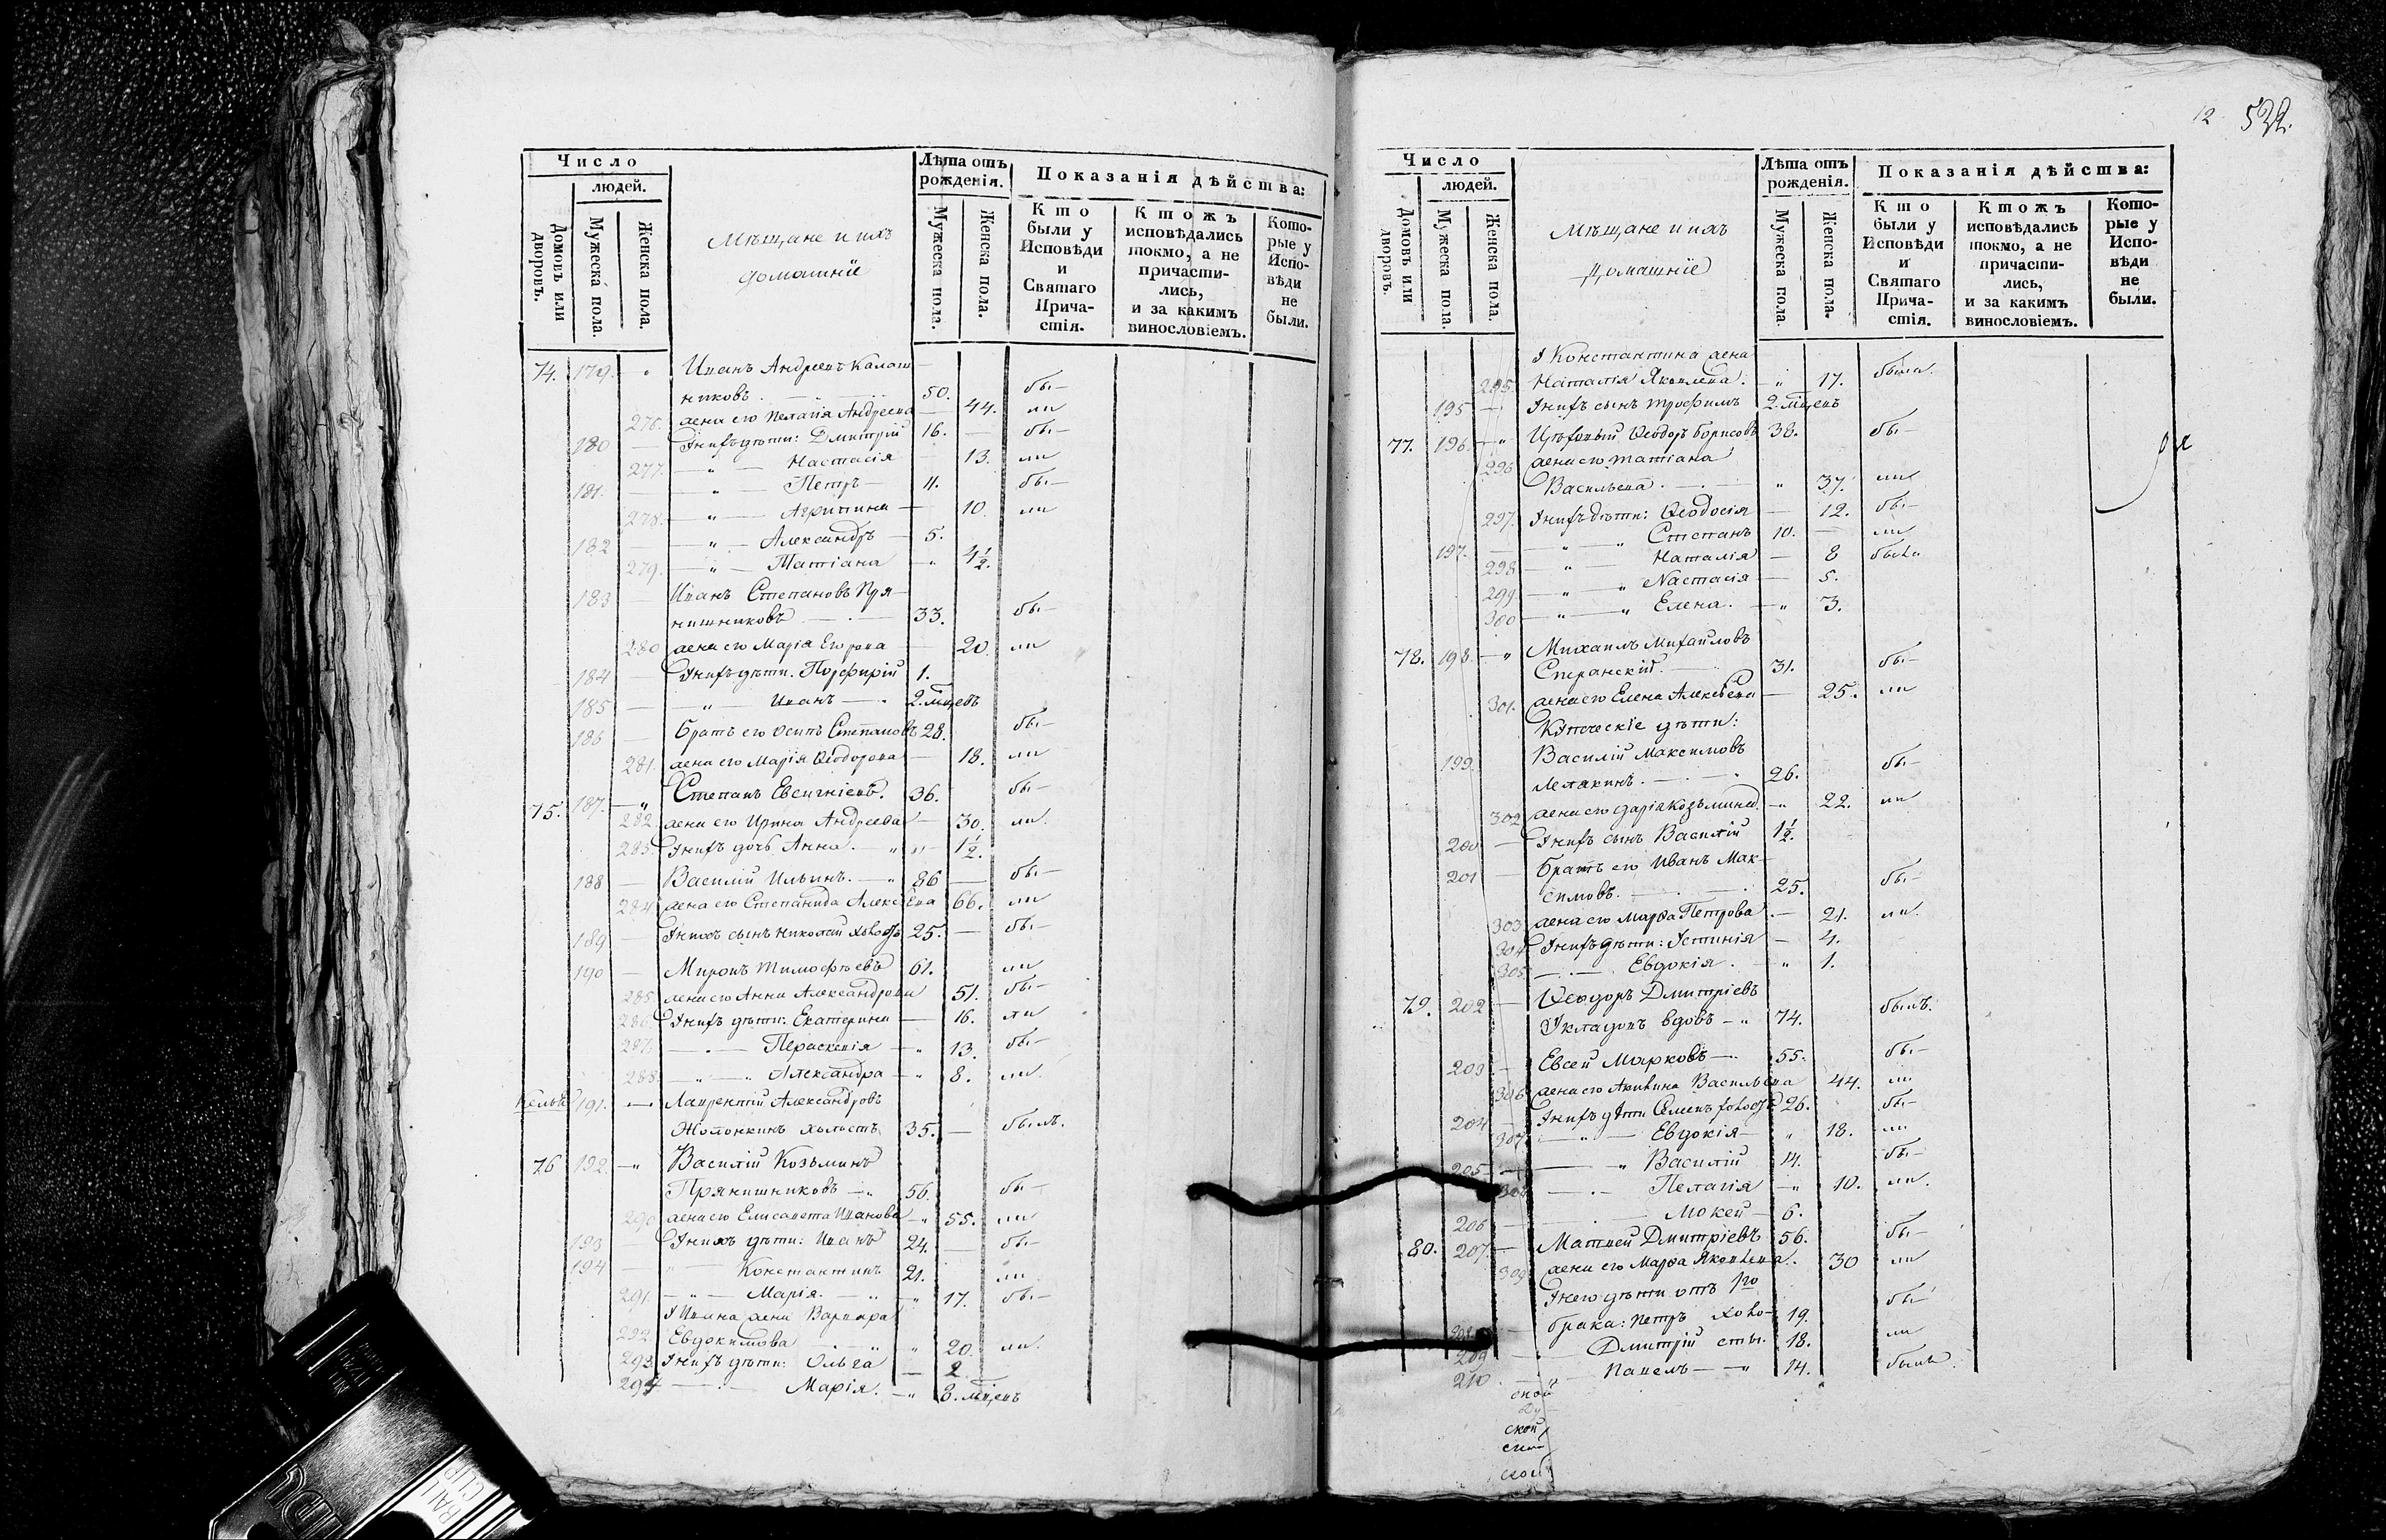 Число
людей.
Домовъ или дворовъ.
Мужеска пола.
Женска пола.
Мѣщане и ихъ
домашніе
Лѣта отъ
рожденія.
Мужеска пола.
Женска пола.
Показанія дѣйства:
Кто
были у
Исповѣди
и
Святаго
Прича-
стія.
Ктожъ
исповѣдались
токмо, а не
причасти-
лись,
и за какимъ
винословіемъ.
Кото-
рые у
Испо-
вѣди
не
были.
74. 179. Иванъ Андреевъ Калаш
никовъ 50. бы-
276. жена его Пелагія Андреева 44. ли
180 У нихъ дѣти: Дмитрій 16. бы-
277. Настасія 13. ли
181. Петръ бы-
278. Агрипина 10. ли
182 Александръ 5.
279. Татіана 4½.
183 Иванъ Степановъ Пря-
нишниковъ 33. бы-
280 жена его Марія Егорова 20. ли
184 У нихъ дѣти. Порфирій 1.
185 Иванъ 2. мцевъ
186 Братъ его Осипъ Степановъ 28. бы-
281. жена его Марія Ѳеодорова 18. ли
75. 187. Степанъ Евсигніевъ. 36. бы-
282. жена его Ирина Андреева 30. ли.
283. У нихъ дочь Анна. 1½.
188 Василій Ильинъ. 86 бы-
284 жена его Степанида Алексѣева 66. ли
189 У нихъ сынъ Николай холостъ 25. бы-
190 Миронъ Тимофѣевъ 61. ли
285. жена его Анна Александрова 51. бы-
286. У нихъ дѣти: Екатерина 16. ли
287. Параскевія 13. бы-
288. Александра 8. ли.
191. Лаврентій Александровъ
холостъ 35. былъ.
76 192. Василій Козьминъ
Прянишниковъ 56. бы-
290 жена его Елисавета Иванова 55. ли
193 У нихъ дѣти: Иванъ 24. бы-
194 Константинъ 21. ли.
291. Марія. 17. бы-
У Ивана жена Варвара
292. Евдокимова 20. ли.
293. У нихъ дѣти: Ольга 2.
294 Марія. 3. мцевъ
12 532.
Число
людей.
Домовъ или дворовъ.
Мужеска пола.
Женска пола.
Мѣщане и ихъ
домашніе
Лѣта отъ
рожденія.
Мужеска пола.
Женска пола.
Показанія дѣйства:
Кто
были у
Исповѣди
и
Святаго
Прича-
стія.
Ктожъ
исповѣдались
токмо, а не
причасти-
лись,
и за какимъ
винословіемъ.
Кото-
рые у
Испо-
вѣди
не
были.
У Константина жена
295. Наталія Яковлева. 17. была.
195 У нихъ сынъ Трофимъ 2. мцевъ
77. 196. Ѳеодоръ Борисовъ 38. бы-
296 жена его Татіана
Васильева. 37. ли
297. У нихъ дѣти: Ѳеодосія 12. бы-
197. Степанъ 10. ли
298 Наталія 8 была
299 Настасія 5.
300 Елена. 3.
78. 198. Михаилъ Михайловъ
Сперанскій. 31. бы-
301. жена его Елена Алексѣева 25. ли
Купеческіе дѣти:
199. Василій Максимовъ
26. бы-
302 жена его Дарія Козьмина. 22. ли
200 У нихъ сынъ Василій 1½.
201 Братъ его Иванъ Мак-
симовъ. 25. бы-
303. жена его Марѳа Петрова 21. ли.
304 У нихъ дѣти: Устинія 4.
305. Евдокія. 1.
79. 202 Ѳеодоръ Дмитріевъ
Укладовъ вдовъ 74. былъ.
203 Евсей Марковъ 55. бы-
306 жена его Акилина Васильева 44. ли
204 У нихъ дѣти Семенъ холостъ 26. бы-
307. Евдокія 18. ли
205 Василій 14. бы-
308 Пелагія 10. ли.
206 Мокей 6.
80. 207. Матвей Дмитріевъ 56. бы-
309. жена его Марѳа Яковлева. 30 ли
У него дѣти отъ 1го
208 брака: Петръ холо- 19. бы-
209 Дмитрій сты. 18. ли
210 Павелъ 14. былъ.
ской
ской
ской